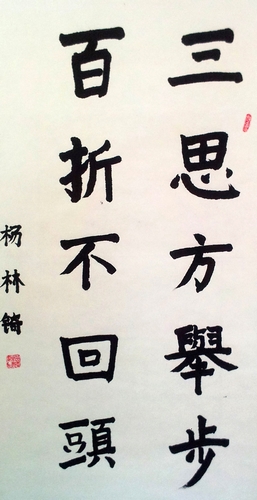 三思方舉步
百折不回頭
杨林锜